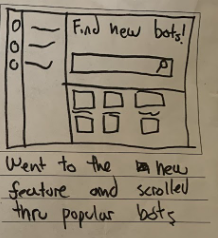 Find new bots!
Went to the new
feature and scrolled
thru popular bots